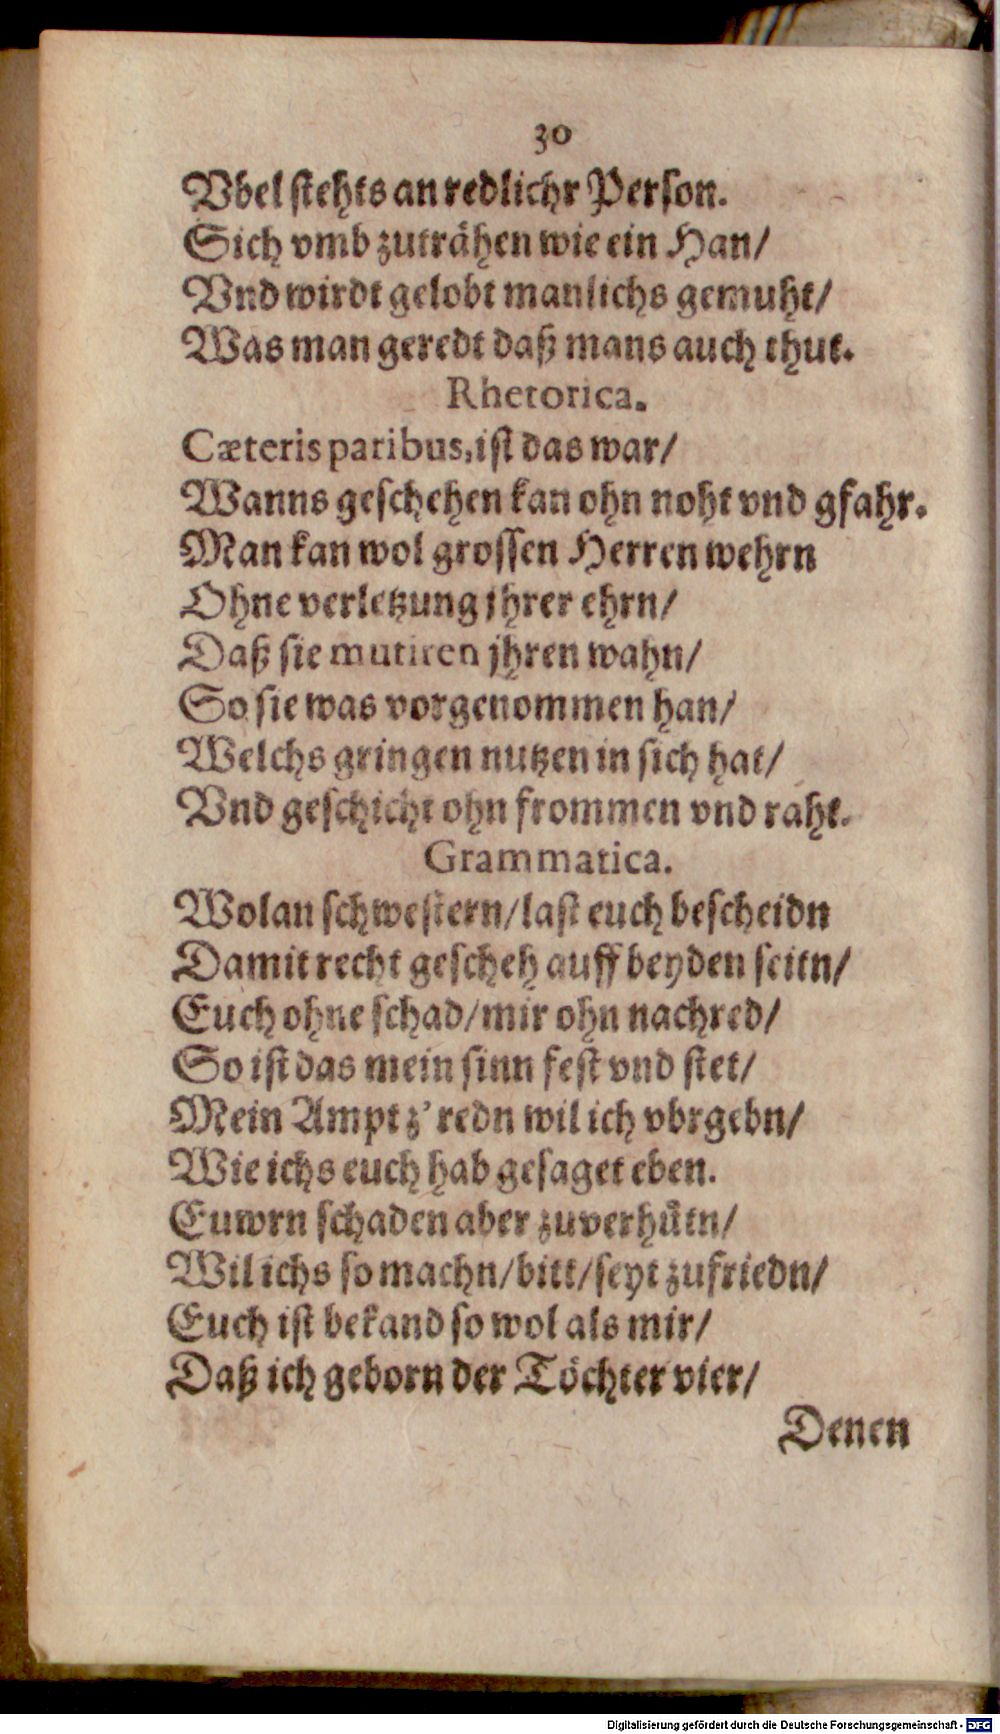 30
Vbel stehts an redlichr Person.
Sich vmb zuträhen wie ein Han/
Vnd wirdt gelobt manlichs gemuht/
Was man geredt daß mans auch thut.
Rhetorica.
Cæteris paribus, ist das war/
Wanns geschehen kan ohn noht vnd gfahr.
Man kan wol grossen Herren wehrn
Ohne verletzung jhrer ehrn/
Daß sie mutiren jhren wahn/
So sie was vorgenommen han/
Welchs gringen nutzen in sich hat/
Vnd geschicht ohn frommen vnd raht.
Grammatica.
Wolan schwestern/last euch bescheidn
Damit recht gescheh auff beyden seitn/
Euch ohne schad/mir ohn nachred/
So ist das mein sinn fest vnd stet/
Mein Ampt z' redn wil ich vbrgebn/
Wie ichs euch hab gesaget eben.
Euwrn schaden aber zuverhütn/
Wil ichs so machn/bitt/seyt zufriedn/
Euch ist bekand so wol als mir/
Daß ich geborn der Töchter vier/
Denen
Digitalisierung gefördert durch die Deutsche Forschungsgemeinschaft - DFG